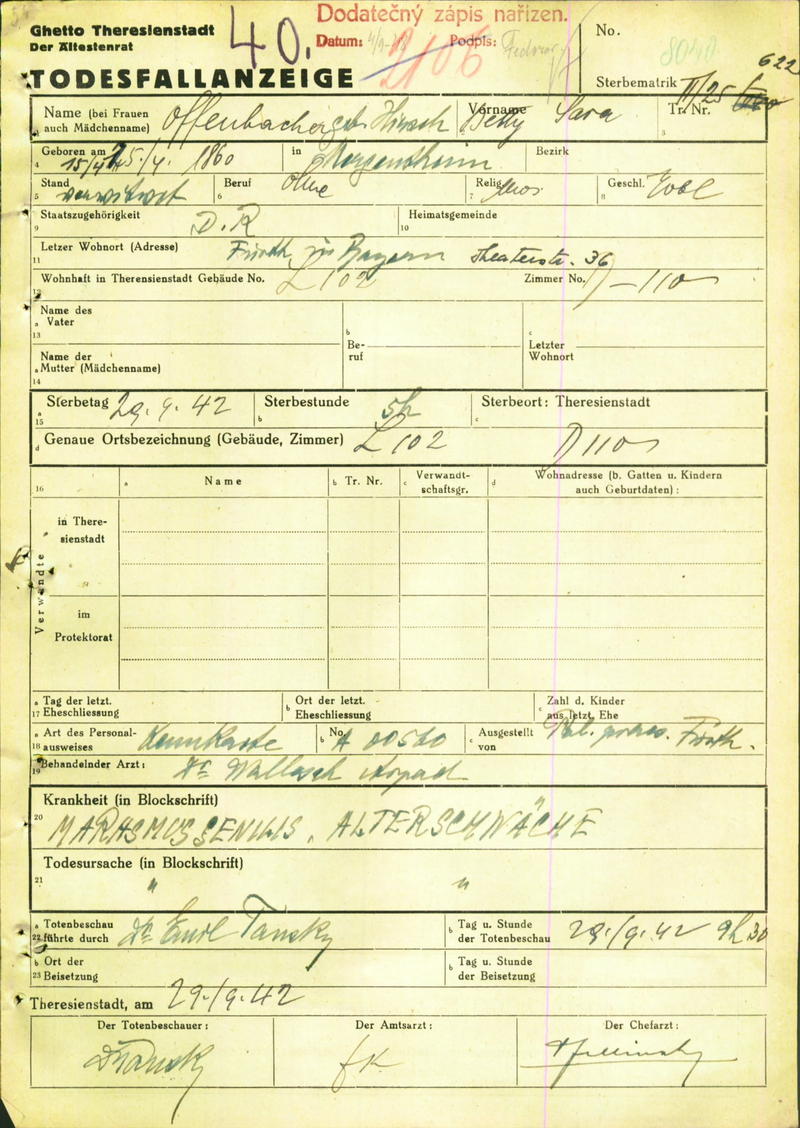 Dodatečný zápis nařízen.
Ghetto Theresienstadt
Der Ältestenrat
40.
Datum: Podpis:
No.
TODESFALLANZEIGE
Sterbematrik II/25
622
Name (bei Frauen auch Mädchenname) Offenbacher geb Hirsch Vorname Betty Sara Tr. Nr.
4 Geboren am 15/4 1860 in Bezirk
5 Stand verwitwet 6 Beruf ohne 7 Relig. mos. 8 Geschl.
9 Staatszugehörigkeit D.R 10 Heimatsgemeinde
11 Letzer Wohnort (Adresse) Fürth in Bayern Theaterstr. 36
12 Wohnhaft in Theresienstadt Gebäude No. L 102 Zimmer No. 110
13 a Name des Vater b Beruf c Letzter Wohnort
14 a Name der Mutter (Mädchenname)
15 a Sterbetag 29. 9. 42 b Sterbestunde 5h c Sterbeort: Theresienstadt
d Genaue Ortsbezeichnung (Gebäude, Zimmer) L 102 110
16 a Name b Tr. Nr. c Verwandtschaftsgr. d Wohnadresse (b. Gatten u. Kindern auch Geburtdaten) :
Verwandte
in Theresienstadt
im Protektorat
17 a Tag der letzt. Eheschliessung b Ort der letzt. Eheschliessung c Zahl d. Kinder aus letzt. Ehe
18 a Art des Personalausweises Kennkarte b No. A 00560 c Ausgestellt von Pol. Fürth.
19 Behandelnder Arzt: Dr Wallasch Arpad
20 Krankheit (in Blockschrift)
MARASMUS SENILIS, ALTERSCHWÄCHE
21 Todesursache (in Blockschrift)
" "
22 a Totenbeschau führte durch Dr Emil Tansky b Tag u. Stunde der Totenbeschau 29./9.42 9h30
23 b Ort der Beisetzung b Tag u. Stunde der Beisetzung
Theresienstadt, am 29./9.42
Der Totenbeschauer: Der Amtsarzt: Der Chefarzt: